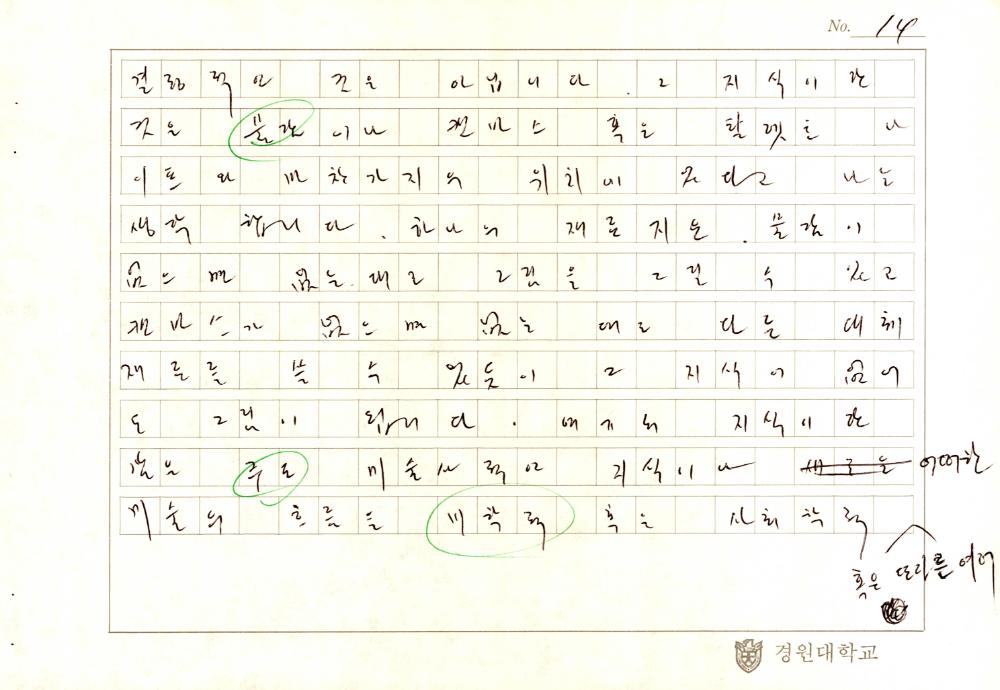 No. 14
결정적인 것은 아닙니다. 그 지식이란
것은 물감이나 캔바스 혹은 팔렛트 나
이프와 마찬가지의 위치에 있다고 나는
생각합니다. 하나의 재료지요. 물감이
없으면 없는대로 그림을 그릴 수 있고
캔바스가 없으면 없는 대로 다른 대체
재료를 쓸 수 있듯이 그 지식이 없어
도 그림이 됩니다. 여기의 지식이란
것은 주로 미술사적인 지식이나 새로운 어떠한
미술의 흐름을 미학적 혹은 사회학적
혹은 또다른 여러
경원대학교